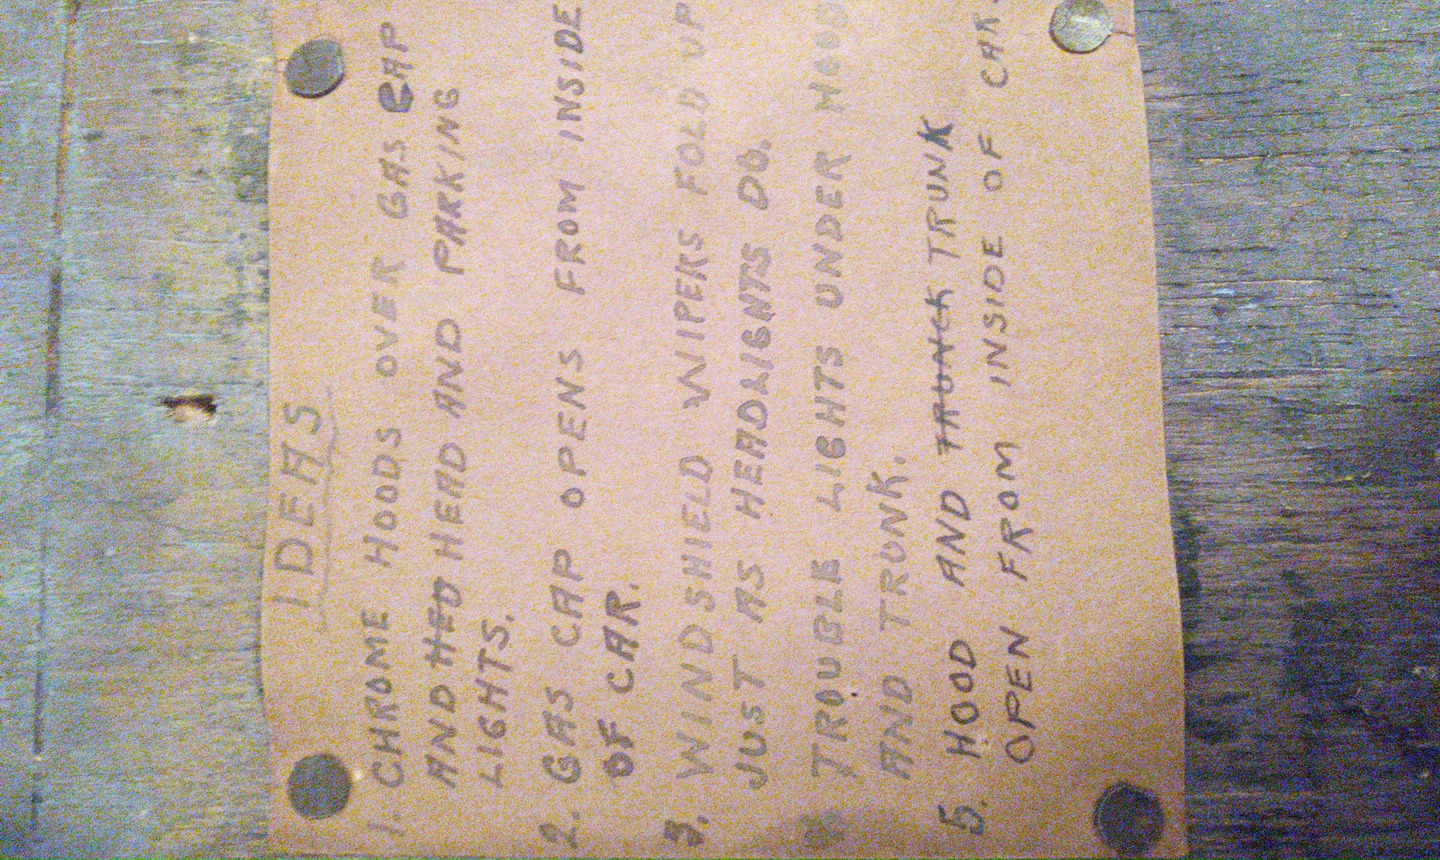 IDEAS
1. CHROME HOODS OVER GAS CAP
AND HED HEAD AND PARKING
LIGHTS.
2. GAS CAP OPENS FROM INSIDE
OF CAR.
3. WINDSHIELD WIPERS FOLD UP
JUST AS HEADLIGHTS DO.
TROUBLE LIGHTS UNDER HOOD
AND TRUNK.
5. HOOD AND TRUNCK TRUNK
OPEN FROM INSIDE OF CAR.